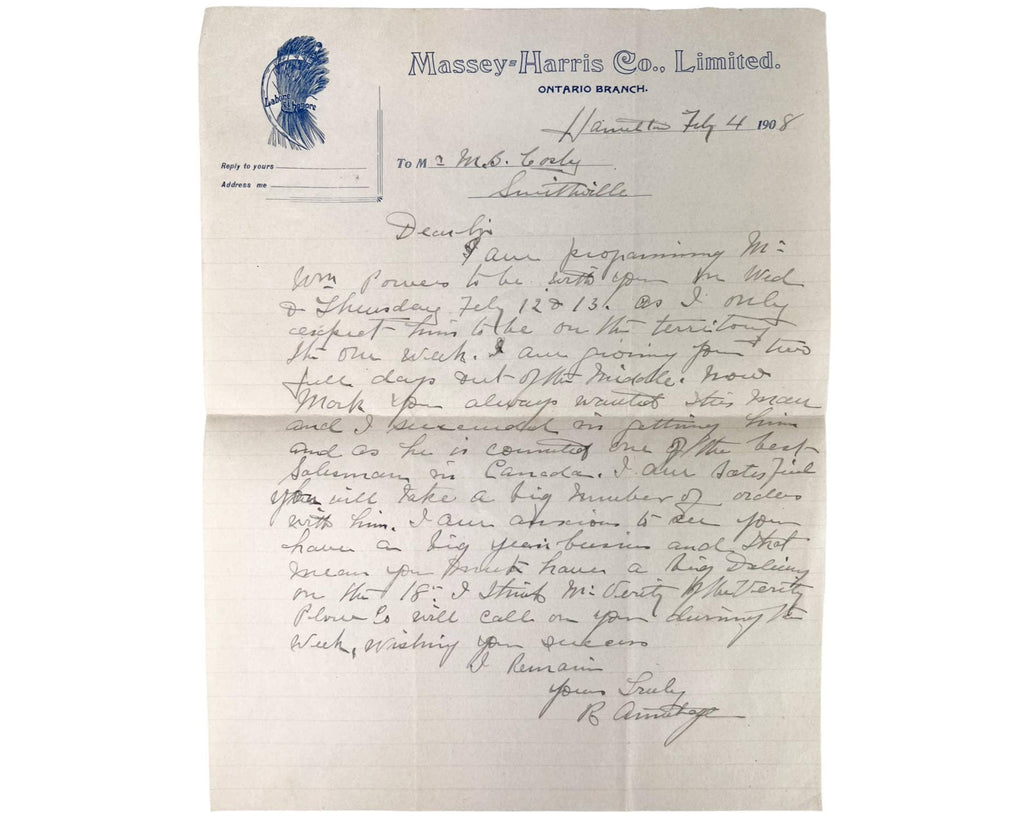 Massey-Harris Co., Limited.
ONTARIO BRANCH.
Labore et honore
Hamilton Feby 4 1908
Reply to yours
Address me
To Mr M.S. Cosby
Smithville
Dear Sir
I am programing Mr
Wm Powers to be with you on Wed
& Thursday Feby 12 & 13. as I only
expect him to be on the territory
the one week. I am giving you two
full days out of the middle. Now
Mark you always wanted this man
and I succeeded in getting him
and as he is counted one of the best
Salesman in Canada. I am satesfied
you will take a big number of orders
with him. I am anxious to see you
have a big years busines and that
mean you must have a big Delivery
on the 18th I think Mr Verity of the Verity
Plow Co will call on you during the
week, wishing you success
I Remain
yours Truly
R Armitage